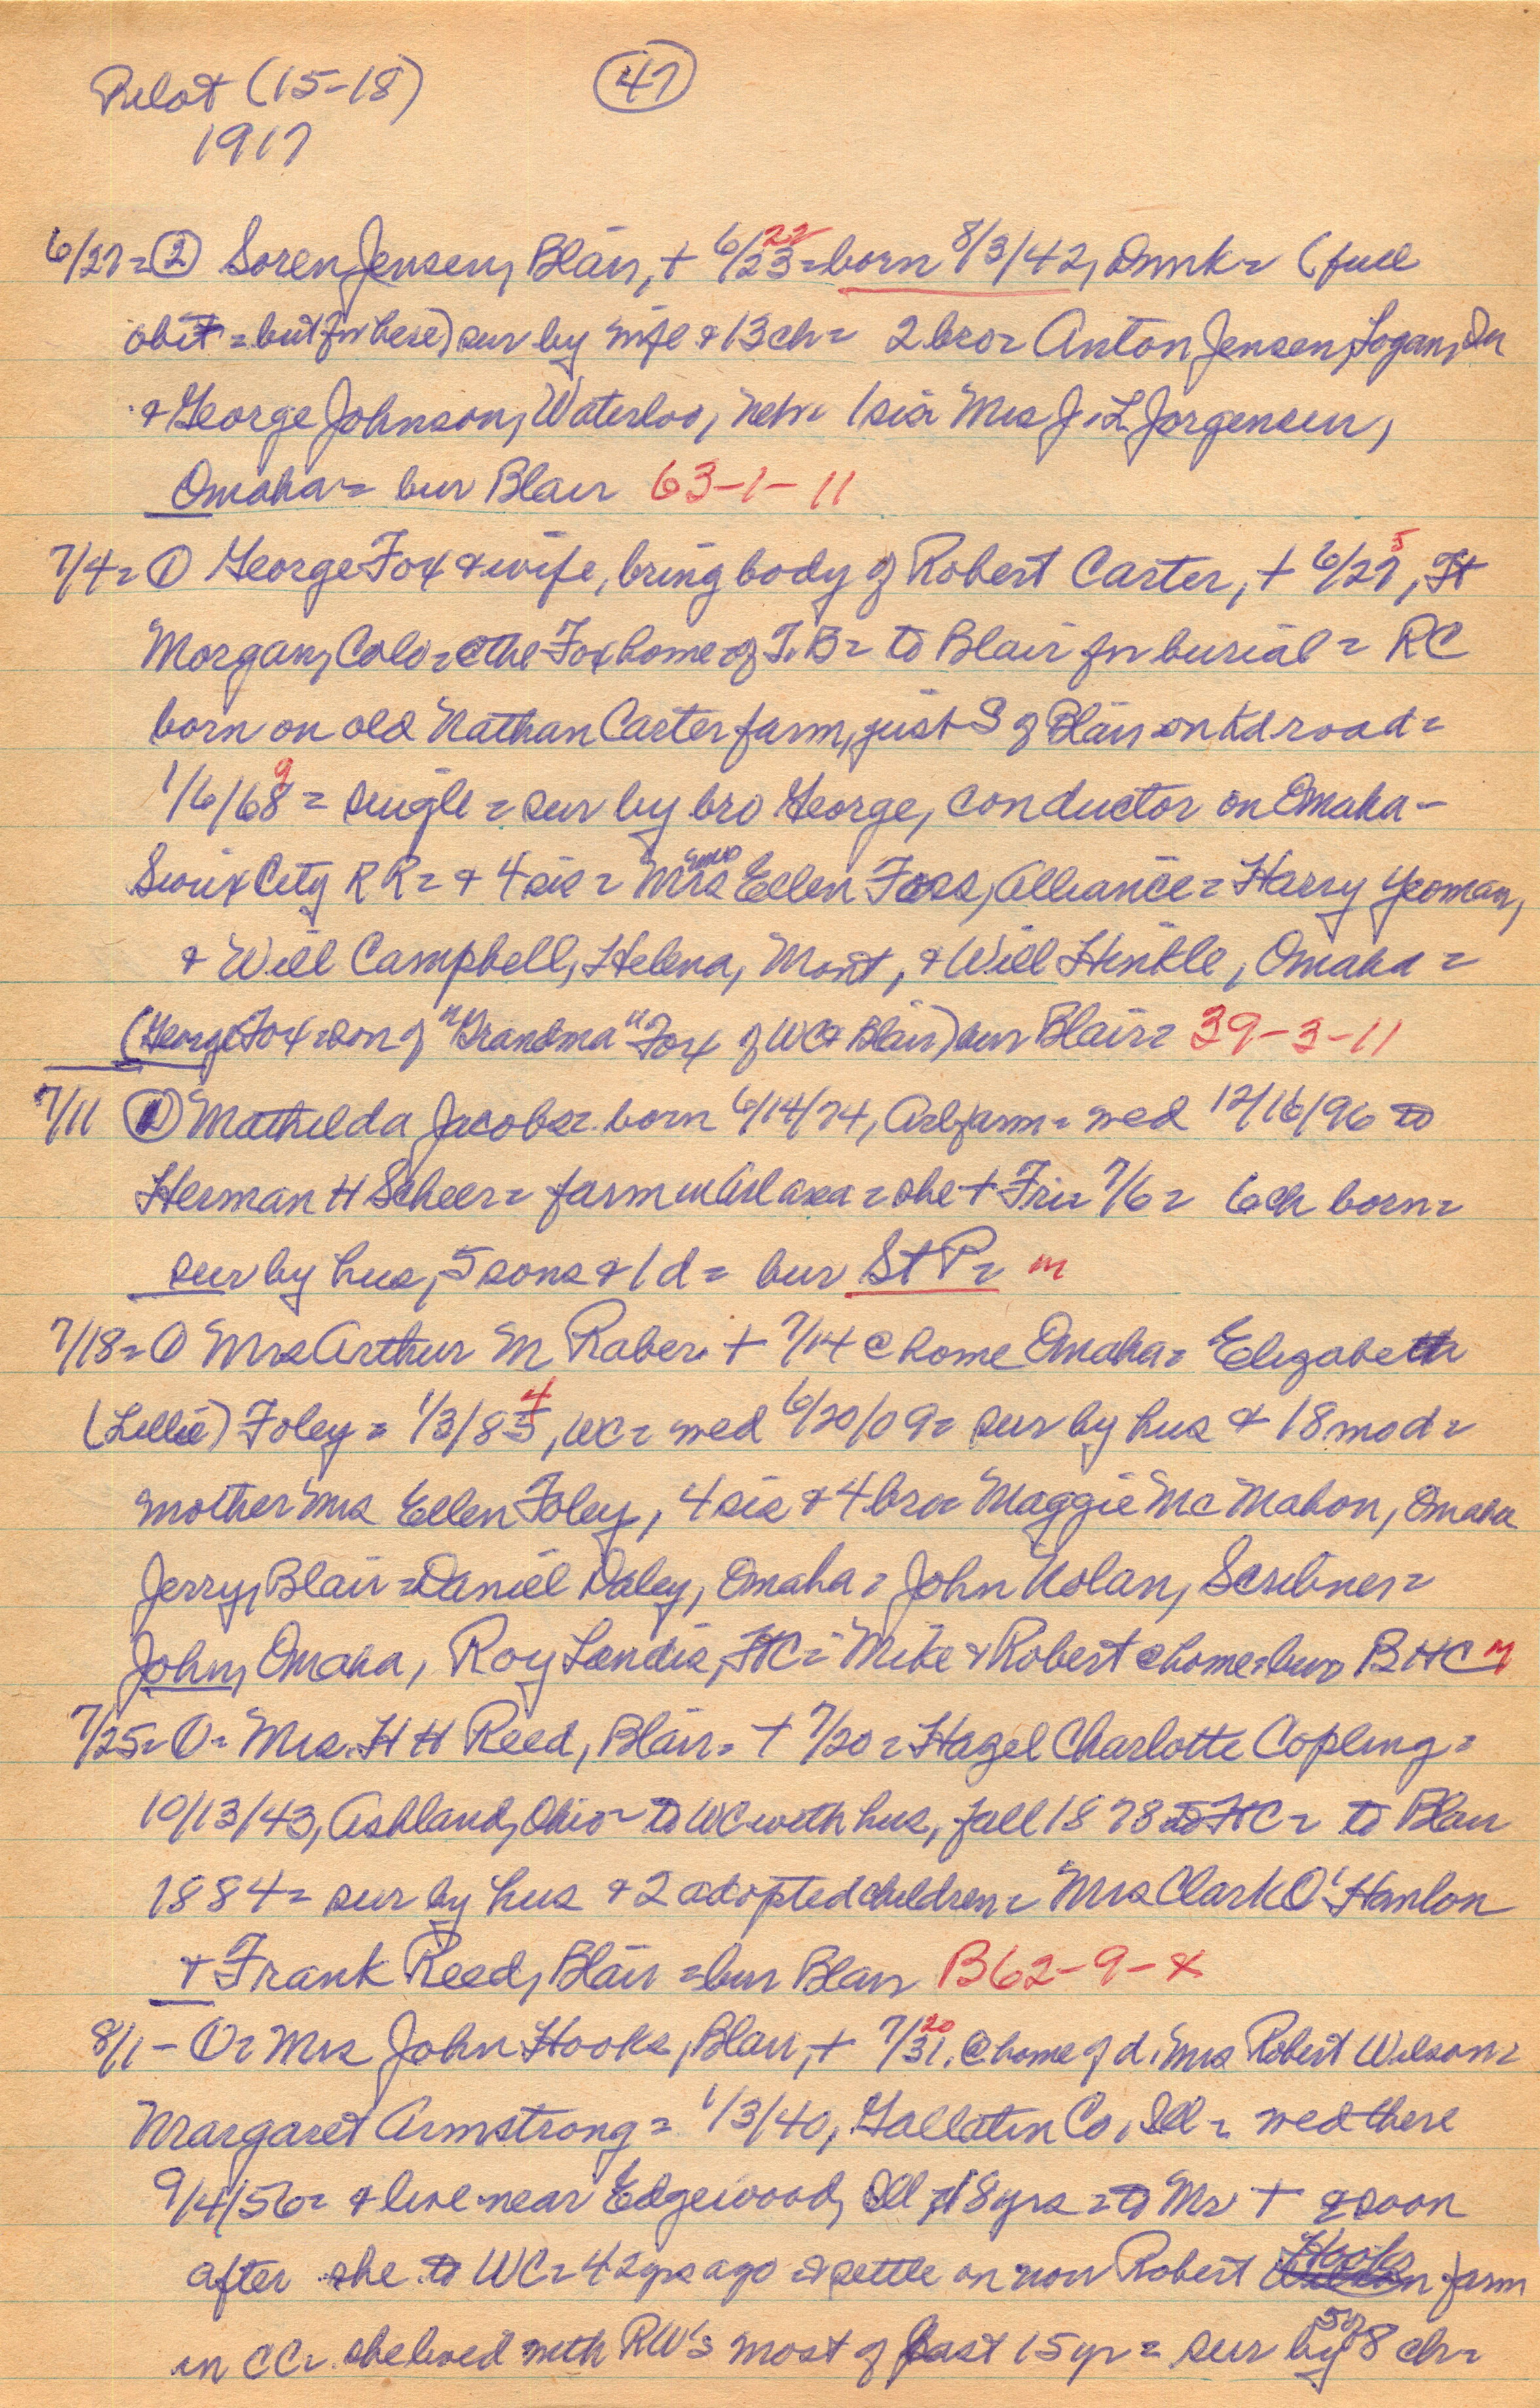 Pilot (15-18) 47
1917
6/27 = 2 Soren Jensen, Blair, + 6/23 22 = born 8/3/42, Dnmk = (full
obit = but for here) sur by wife & 13 ch = 2 bro = Anton Jensen, Logan, Ia
& George Johnson, Waterloo, Neb = 1 sis Mrs J. L. Jorgensen,
Omaha = bur Blair 63-1-11
7/4 = 1 George Fox & wife, bring body of Robert Carter, + 6/27 5, Ft
Morgan, Colo = @ the Fox home = of T.B = to Blair for burial = RC
born on old Nathan Carter farm, just S of Blair on Kd road =
1/6/68 9 = single = sur by bro George, conductor on Omaha -
Sioux City R R = & 4 sis = Mrs Ellen Foss, Alliance = Harry Yeoman,
& Will Campbell, Helena, Mont, & Will Hinkle, Omaha =
(George Fox = son of "Grandma" Fox of WC & Blair) bur Blair = 39-3-11
7/11 1 Mathilda Jacobs = born 6/14/74, Arl farm = wed 12/16/96 to
Herman H Scheer = farm in Arl area = she + Fri = 7/6 = 6 ch born =
sur by hus, 5 sons & 1 d = bur St P = m
7/18 = 0 Mrs Arthur M Raber. + 7/14 @ home Omaha = Elizabeth
(Lillie) Foley = 1/3/85 4, WC = wed 6/20/09 = sur by hus & 18 mo d =
mother Mrs Ellen Foley, 4 sis & 4 bro = Maggie McMahon, Omaha
Jerry, Blair = Daniel Daley, Omaha = John Nolan, Scribner =
John, Omaha, Roy Landis, HC = Mike & Robert @ home = bur B HC m
7/25 = 0 = Mrs. H H Reed, Blair = + 7/20 = Hazel Charlotte Copling =
10/13/43, Ashland, Ohio - to WC with hus, fall 1878 to HC = to Blair
1884 = sur by hus & 2 adopted children = Mrs Clark O'Hanlon
& Frank Reed, Blair = bur Blair B62-9-x
8/1 - 0 = Mrs John Hooks, Blair, + 7/31 20, @ home of d. Mrs Robert Wilson =
Margaret Armstrong = 1/3/40, Gallatin Co, Ill = wed there
9/4/56 = & live near Edgewood, Ill, 18 yrs = to Mr + & soon
after she to WC = 42 yrs ago & settle on now Robert Hooks farm
in CC = she lived with RW's most of past 15 yr = sur by 5 of 8 ch =